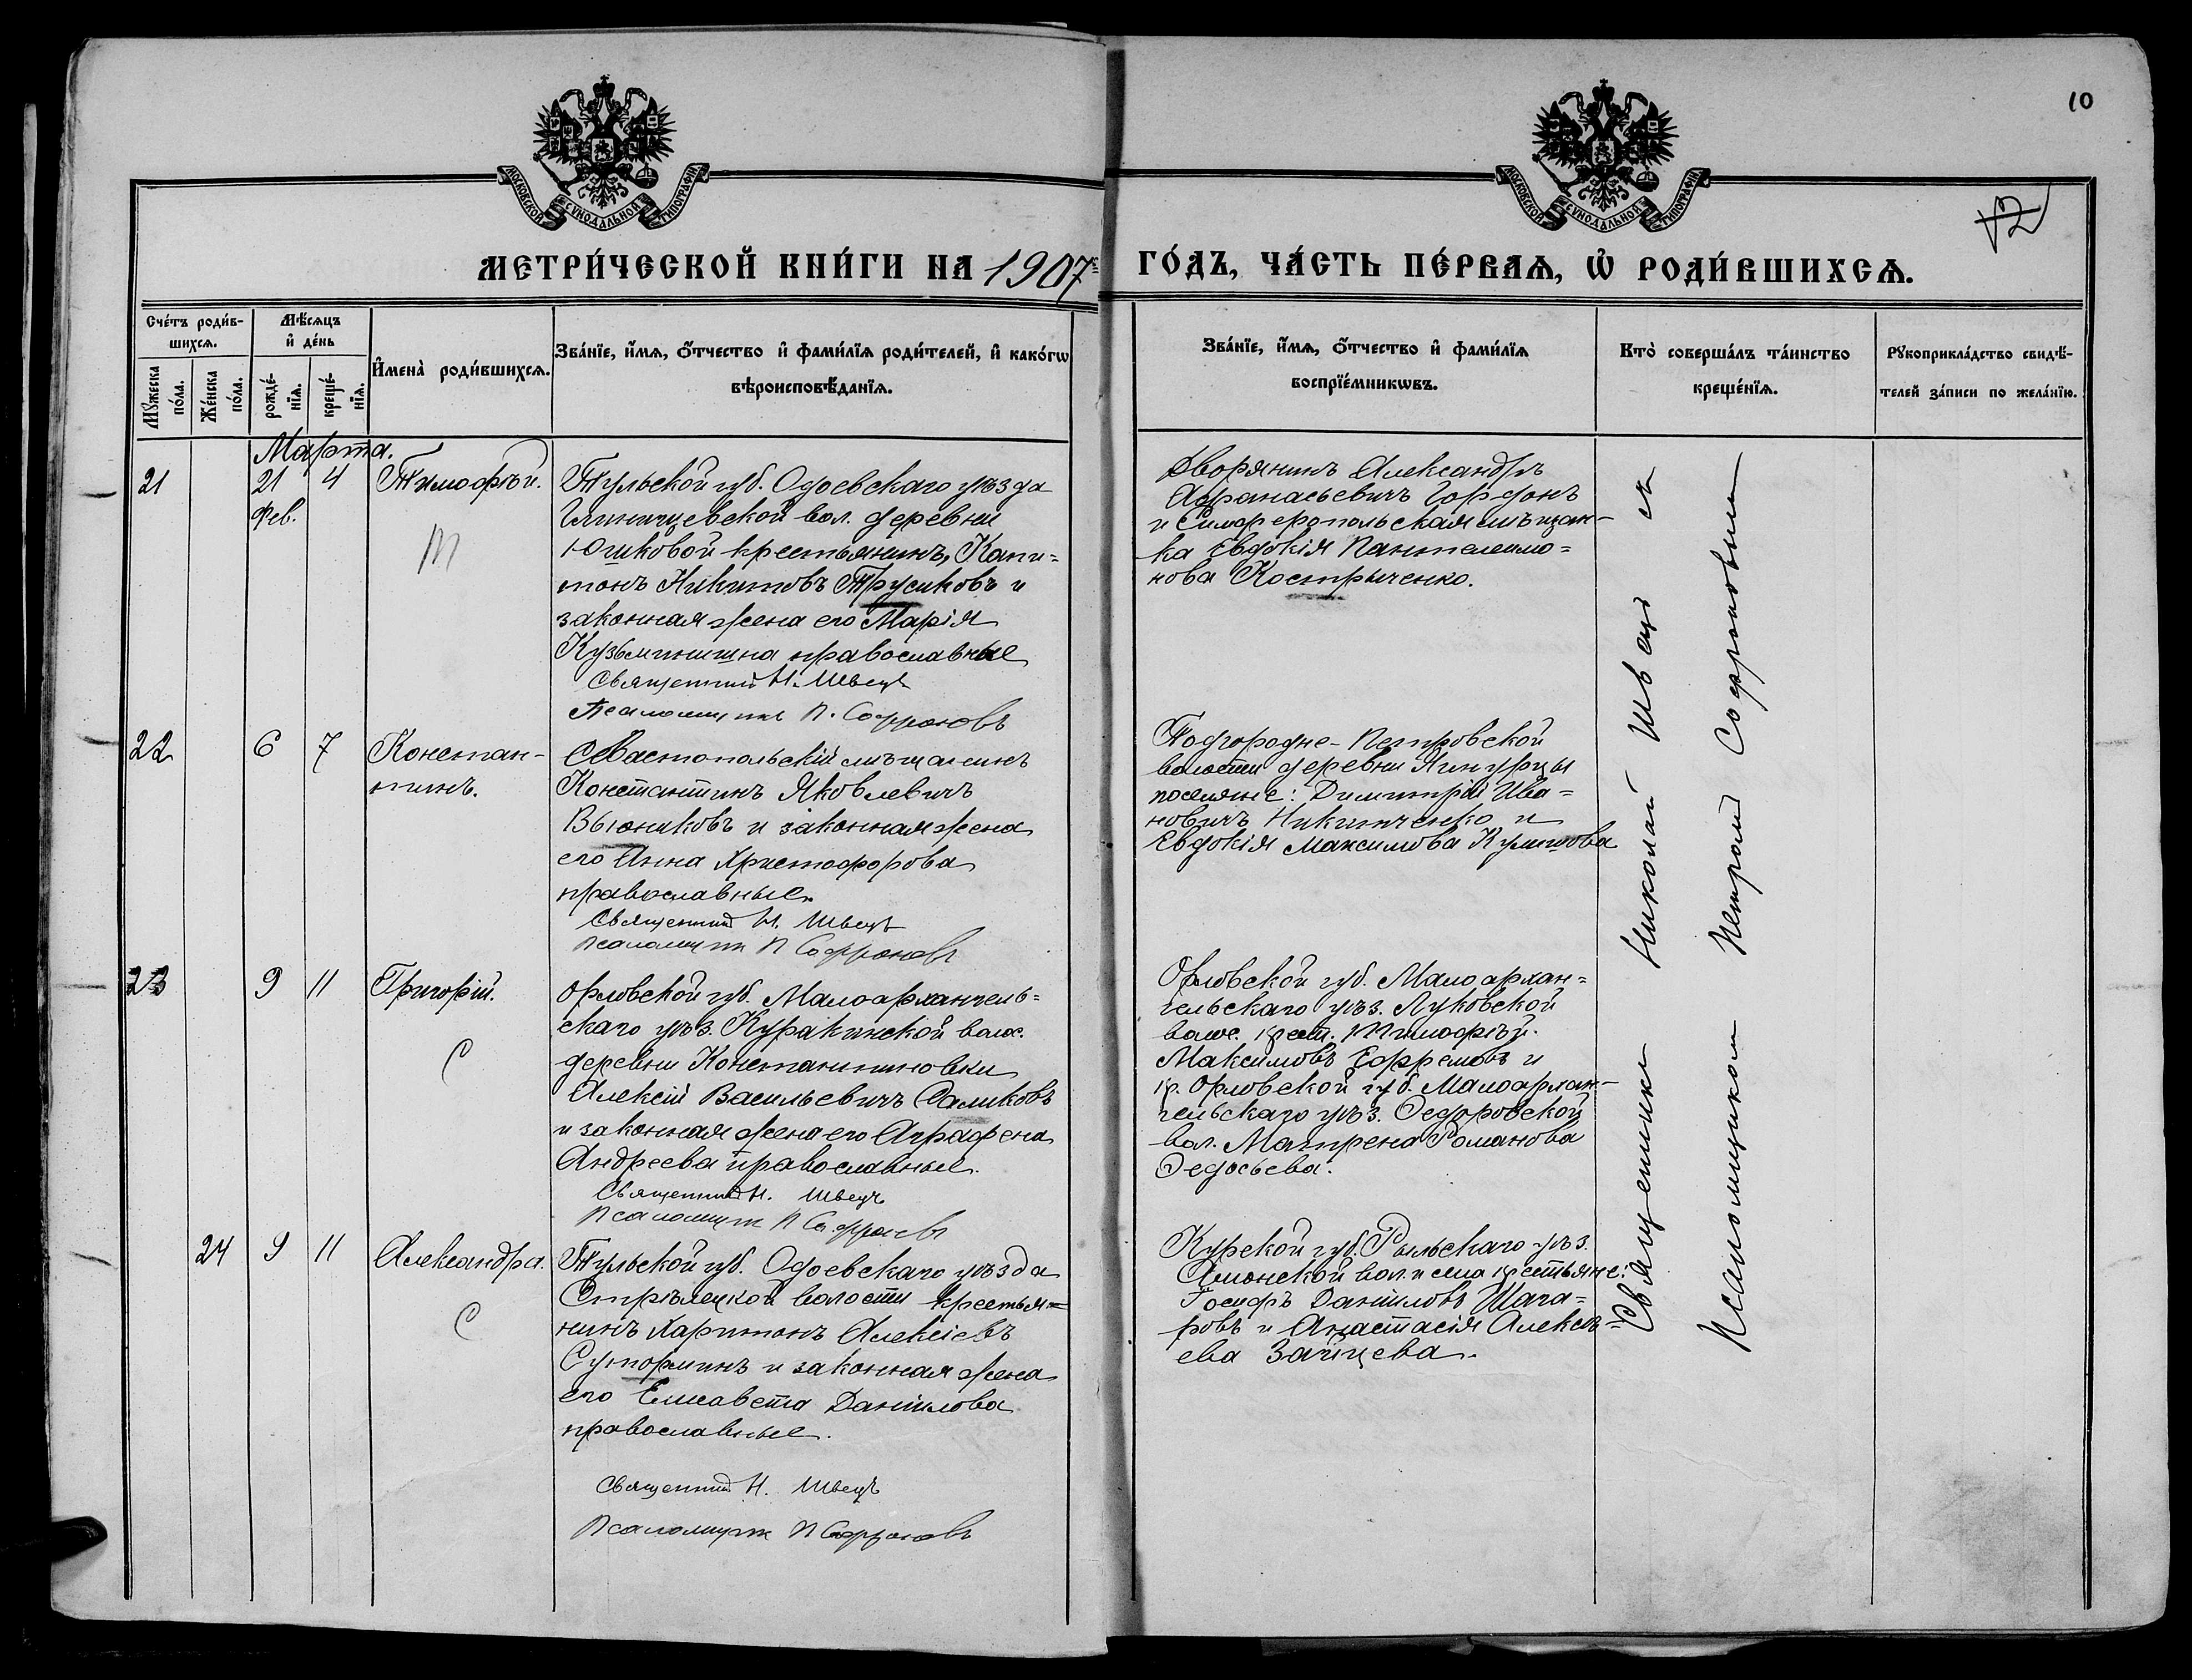 10
12
МОСКОВСКОЙ СѴНОДАЛЬНОЙ ТИПОГРАФІИ
МОСКОВСКОЙ СѴНОДАЛЬНОЙ ТИПОГРАФІИ
МЕТРИ́ЧЕСКОЙ КНИ́ГИ НА 1907 ГО́ДЪ, ЧА́СТЬ ПЕ́РВАѦ, Ѡ҆ РОДИ́ВШИХСѦ.
Сче́тъ роди́в-
шихсѧ.
Мꙋжеска по́ла.
Же́нска по́ла.
Мѣ́сѧцъ
и҆ де́нь
рожде́-
нїѧ.
креще́-
нїѧ.
И҆мена̀ роди́вшихсѧ.
Зва́нїе, и҆́мѧ, ѻ҆́тчество и҆ фами́лїѧ роди́телей, и҆ како́гѡ
вѣроисповѣ́данїѧ.
Зва́нїе, и҆́мѧ, ѻ҆́тчество и҆ фами́лїѧ
воспрїе́мникѡвъ.
Кто̀ соверша́лъ та́инство
креще́нїѧ.
Рꙋкоприкла́дство свидѣ́-
телей за́писи по жела́нїю.
Марта.
21
21
Фев.
4
Тимофѣй.
Т
Тульской губ. Одоевскаго уѣзда
вол. деревни
Юшковой крестьянинъ, Капи-
тонъ Никитовъ Трусиковъ и
законная жена его Марія
Кузьминишна православные
Священник Н. Швецъ
Псаломщикъ П. Софроновъ
Дворянинъ Александръ
Афанасьевичъ Гордонъ
и Симферопольская мѣщан-
ка Евдокія Пантелеимо-
нова Кострыченко.
22
6
7
Констан-
тинъ.
Севастопольскій мѣщанинъ
Константинъ Яковлевичъ
Вьюниковъ и законная жена
его Анна Христофорова
православные.
Священник Н. Швецъ
Псаломщик П Софроновъ
Подгородне-Петровской
волости деревни
поселяне: Димитрій Ива-
новичъ Никитченко и
Евдокія Максимова
23
9
11
Григорій.
С
Орловской губ. Малоархангель-
скаго уѣз. Куракинской волос.
деревни Константиновки
Алексій Васильевичъ Саликовъ
и законная жена его Аграфена
Андреева православные.
Священник Н. Швецъ
Псаломщик П Софроновъ
Орловской губ. Малоархан-
гельскаго уѣз. Луковской
волос. крест. Тимофѣй
Максимовъ Ефремовъ и
кр. Орловской губ. Малоархан-
гельскаго уѣз. Ѳедоровской
вол. Матрена Романова
Ѳедосьева.
24
9
11
Александра.
С
Тульской губ. Одоевскаго уѣзда
Стрѣлецкой волости крестья-
нинъ Харитонъ Алексіевъ
Суторминъ и законная жена
его Елисавета Даніилова
православные.
Священник Н. Швецъ
Псаломщик П Софроновъ
Курской губ. Рыльскаго уѣз.
Амонской вол. и села крестьяне:
Іосифъ Даніиловъ Шага-
ровъ и Анастасія Алексѣ-
ева Зайцева.
Священникъ Николай Швецъ съ
Псаломщикомъ Петромъ Софроновымъ